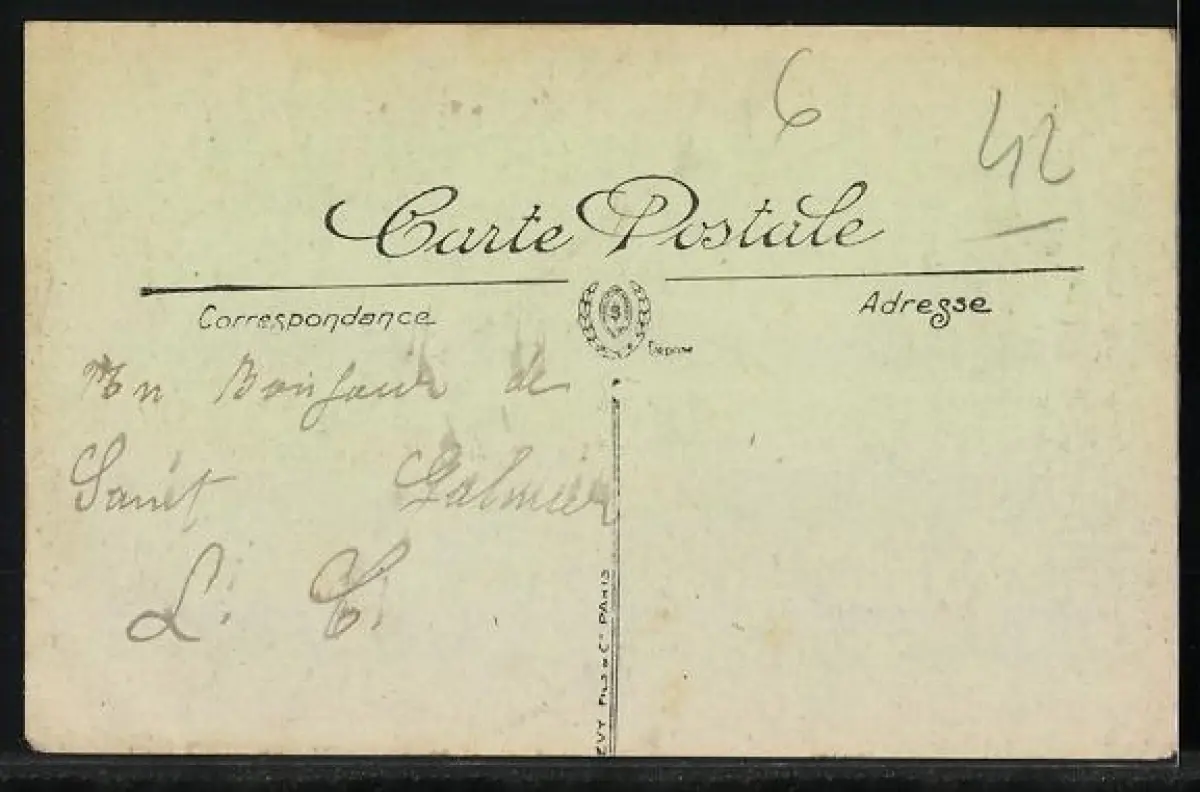 6
42
Carte Postale
Correspondance
Adresse
Déposé
Un Bonjour de
Saint Galmier
L. C.
EVY FILS & Cie PARIS